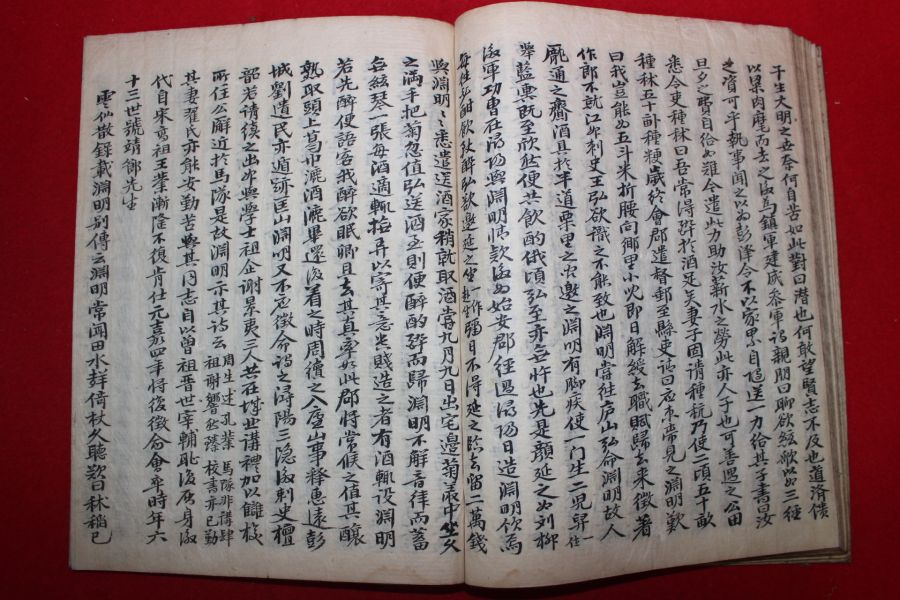 子生文明之世奈何自苦如此對曰潛也何敢望賢志不及也道濟饋
以粱肉麾而去之後爲鎮軍建威參軍謂親朋曰聊欲絃歌以爲三徑
之資可乎執事聞之以爲彭澤令不以家累自隨送一力給其子書曰汝
旦夕之費自給爲難今遣此力助汝薪水之勞此亦人子也可善遇之公田
悉令吏種秫曰吾常得醉於酒足矣妻子固請種秔乃使二頃五十畝
種秫五十畝種粳歲終會郡遣督郵至縣吏請曰應束帶見之淵明歎
曰我豈能爲五斗米折腰向鄉里小兒即日解綬去職賦歸去來徵著
作郎不就江州刺史王弘欲識之不能致也淵明嘗往廬山弘命淵明故人
龐通之齎酒具於半道栗里之間邀之淵明有脚疾使一門生二兒舁一作
擧籃輿旣至欣然便共飲酌俄頃弘至亦無忤也先是顏延之爲劉柳
後軍功曹在潯陽與淵明情款後爲始安郡經過潯陽日造淵明飲焉
每往必酣飲致醉弘欲邀延之坐彌日不得延之臨去留二萬錢
與淵明淵明悉遣送酒家稍就取酒嘗九月九日出宅邊菊叢中坐久
之滿手把菊忽值弘送酒至則便醉酌醉而歸淵明不解音律而蓄
無絃琴一張每酒適輒撫弄以寄其意貴賤造之者有酒輒設淵明
若先醉便語客我醉欲眠卿且去其眞率如此郡將常候之値其釀
熟取頭上葛巾漉酒漉畢還復着之時周續之入廬山事釋惠遠彭
城劉遺民亦遁迹匡山淵明又不應徵命謂之潯陽三隱後刺史檀
韶苦請續之出州與學士祖企謝景夷三人共在城北講禮加以讎校
所住公廨近於馬隊是故淵明示其詩云周生述孔業祖謝響然臻馬隊非講肆校書亦已勤
其妻翟氏亦能安勤苦與其同志自以曾祖晉世宰輔恥復屈身後
代自宋高祖王業漸隆不復肯仕元嘉四年將復徵命會卒時年六
十三世號靖節先生
雲仙散錄載淵明別傳云淵明常聞田水聲倚杖久聽歎曰秫稻已